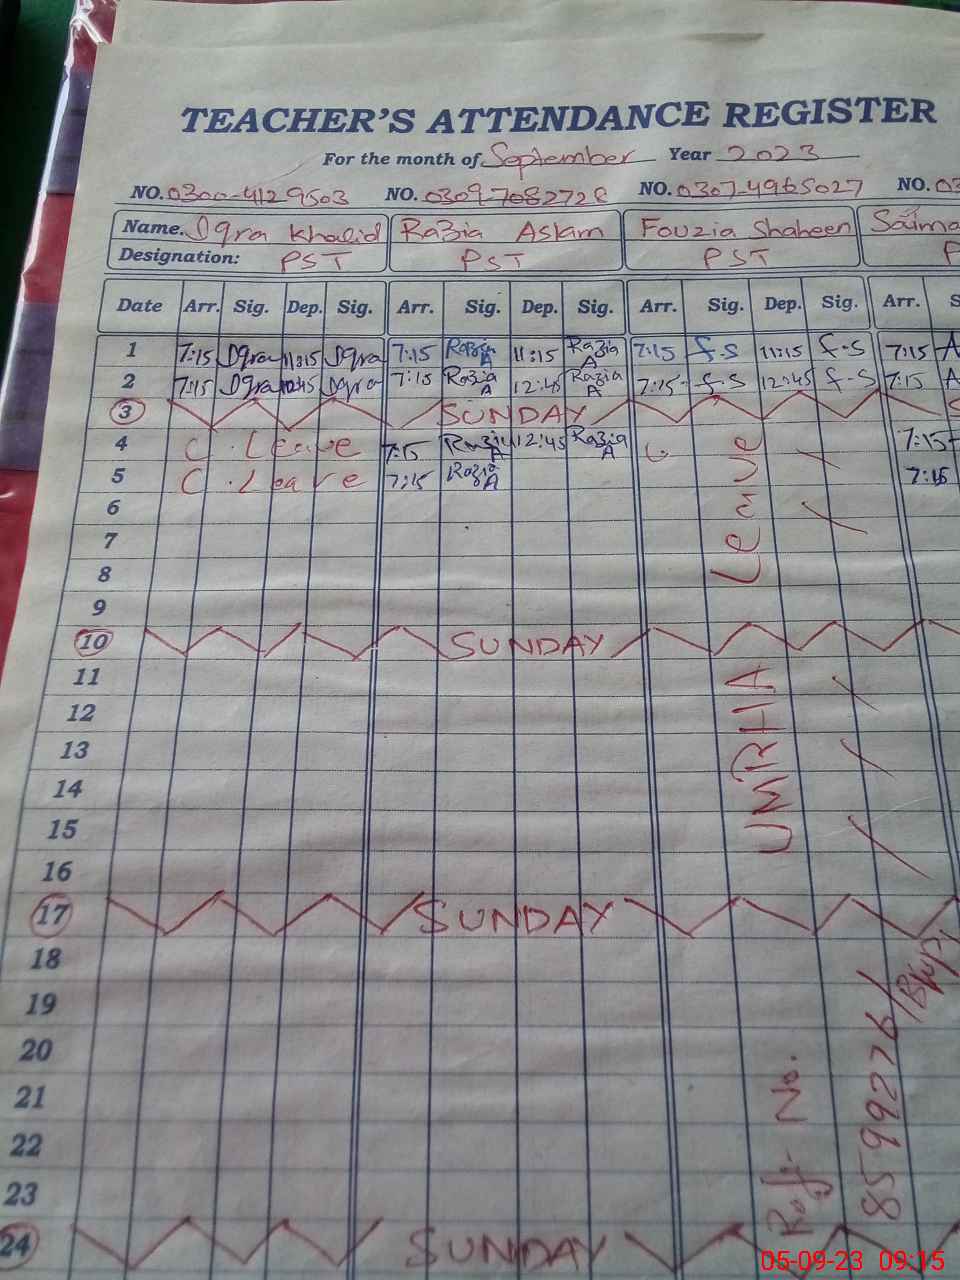 TEACHER'S ATTENDANCE REGISTER
For the month of September Year 2023
NO. 0300-4129503 NO. 0309-7082728 NO. 0307-4965027 NO. 03
Name. Iqra Khalid Razia Aslam Fouzia Shaheen Saima
Designation: PST PST PST P
Date Arr. Sig. Dep. Sig. Arr. Sig. Dep. Sig. Arr. Sig. Dep. Sig. Arr. S
1 7:15 Iqra 11:15 Iqra 7:15 Razia A 11:15 Razia A 7:15 F.S 11:15 F.S 7:15 A
2 7:15 Iqra 12:45 Iqra 7:15 Razia A 12:45 Razia A 7:15 F.S 12:45 F.S 7:15 A
3 SUNDAY S
4 C. Leave 7:15 Razia A 12:45 Razia A 7:15
5 C. Leave 7:15 Razia A 7:15
6
7
8
9
10 SUNDAY
11
12
13
14
15
16
17 SUNDAY
18
19
20
21
22
23
24 SUNDAY
UMRHA Leave
No.
8599276/
05-09-23 09:15